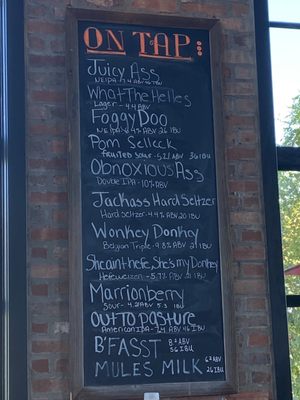 ON TAP:
Juicy Ass
What The Helles
Lager - 4.4 ABV
Foggy Doo
Pom Selleck
fruited sour - 5.2 ABV 3 IBU
Obnoxious Ass
Double IPA - 10% ABV
Jackass Hard Seltzer
Hard Seltzer - 4.4% ABV 20 IBU
Wonkey Donkey
Belgian Triple - 9.8% ABV 21 IBU
She aint here, She's my Donkey
Hefeweizen - 5.7% ABV
Marrionberry
Sour - 4.2% ABV 5.3 IBU
Out to Pasture
American IPA - 7.4 ABV 46 IBU
B'FASST 8% ABV
36 IBU
MULES MILK 6% ABV
26 IBU